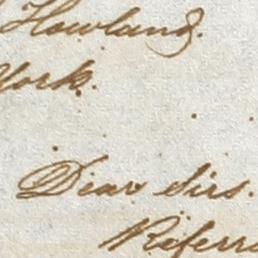 Howland.
York.
Dear Sirs.
Referr